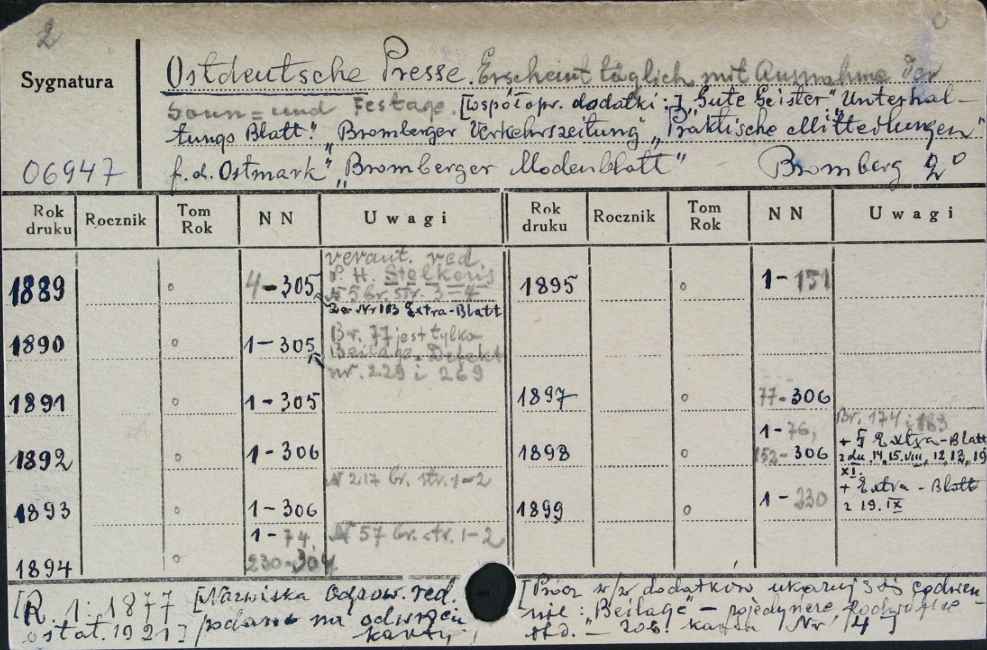 2
Sygnatura
Ostdeutsche Presse. Erscheint täglich mit Ausnahme der
Sonn= und Festage. [współopr. dodatki:] "Gute Geister" Unterhal-
tungs Blatt." "Bromberger Verkehrszeitung" "Praktische Mitteilungen"
06947 f. d. Ostmark" "Bromberger Modenblatt" - Bromberg 2°
Rok druku Rocznik Tom Rok NN Uwagi Rok druku Rocznik Tom Rok NN Uwagi
verant. red.
1889 4-305 H. 1895 1-151
№ 5 br. str. 3-4
Extra-Blatt
1890 1-305 Br. 77 jest tylko
Beilage. Defekt
nr. 229 i 269
1891 1-305 1897 77-306
Br. 174 i 183
1892 1-306 1898 1-76, 152-306 + 5 Extra-Blatt
z dn. 14, 15. VIII, 12, 13, 19
XI.
№ 217 br. str. 1-2
1893 1-306 1899 1-230 + Extra-Blatt
z 19. IX
1894 1-74, 230-304 № 57 br. str. 1-2
[R. 1: 1877 [Nazwiska odpow. red.
ostat. 1921] podane na odwrocie
karty]
[Prócz w/w dodatków ukazuj się codzien-
nie: "Beilage" - pojedyncze